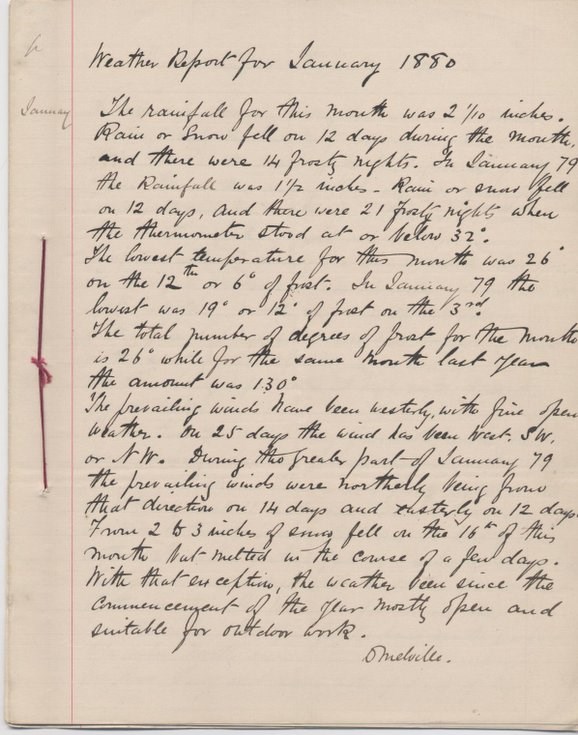 January
Weather Report for January 1880
The rainfall for this month was 2 1/10 inches.
Rain or Snow fell on 12 days during the month,
and there were 14 frosty nights. In January 79
the Rainfall was 1 1/2 inches - Rain or snow fell
on 12 days, and there were 21 frosty nights when
the thermometer stood at or below 32°.
The lowest temperature for this month was 26°
on the 12th or 6° of frost. In January 79 the
lowest was 19° or 12° of frost on the 3rd.
The total number of degrees of frost for the month
is 26° while for the same month last year
the amount was 130°
The prevailing winds have been westerly, with fine open
weather. On 25 days the wind has been West. S W.
or N W. During the greater part of January 79
the prevailing winds were northerly being from
that direction on 14 days and easterly on 12 days.
From 2 to 3 inches of snow fell on the 16th of this
month but melted in the course of a few days.
With that exception, the weather been since the
commencement of the year mostly open and
suitable for outdoor work.
D Melville.